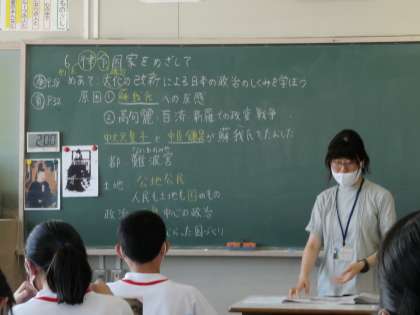 6. 律令国家をめざして
めあて 大化の改新による日本の政治のしくみを学ぼう
P.32
原因① 蘇我氏への反感
②高句麗・百済・新羅での政変・戦争
中大兄皇子や中臣鎌足が蘇我氏をたおした
都 難波宮
土地 公地公民
人民も土地も国のもの
政治 中心の政治
らった国づくり
200